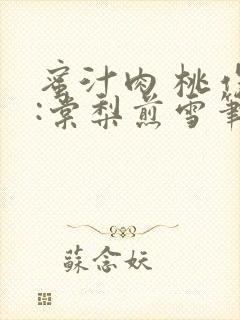 蜜汁肉桃 作
:棠梨煎雪筆
蘇念妖